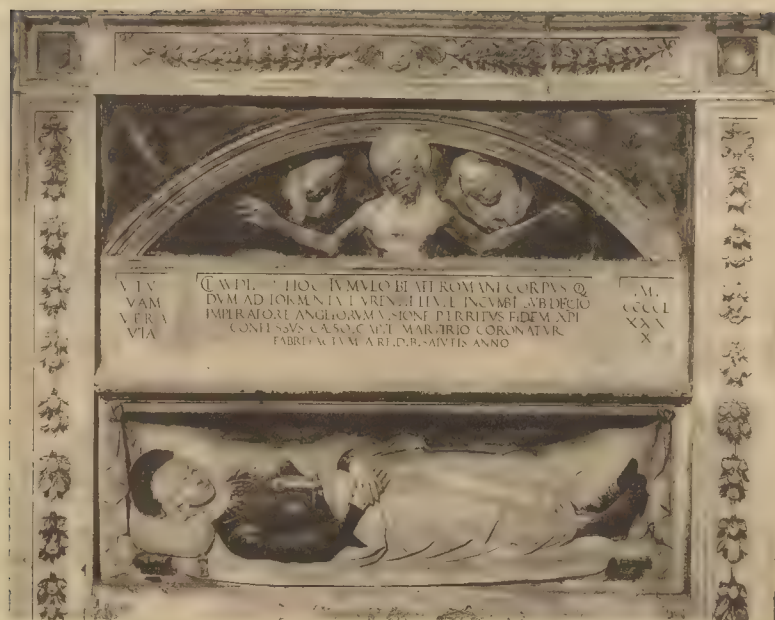 VIV
VAM
VERA
VIA
HOC TVMVLO BEATI ROMANI CORPVS Q
DVM AD TORMENTA INCVMBI SVB DECIO
IMPERATORE ANGELORVM VISIONE PERRITVS FIDEM XPI
CONFESSVS CÆSO CAPIT MARTIRIO CORONATVR
FABREFACTVM ÆRE D B SALVTIS ANNO
M
CCCCL
XXX
X